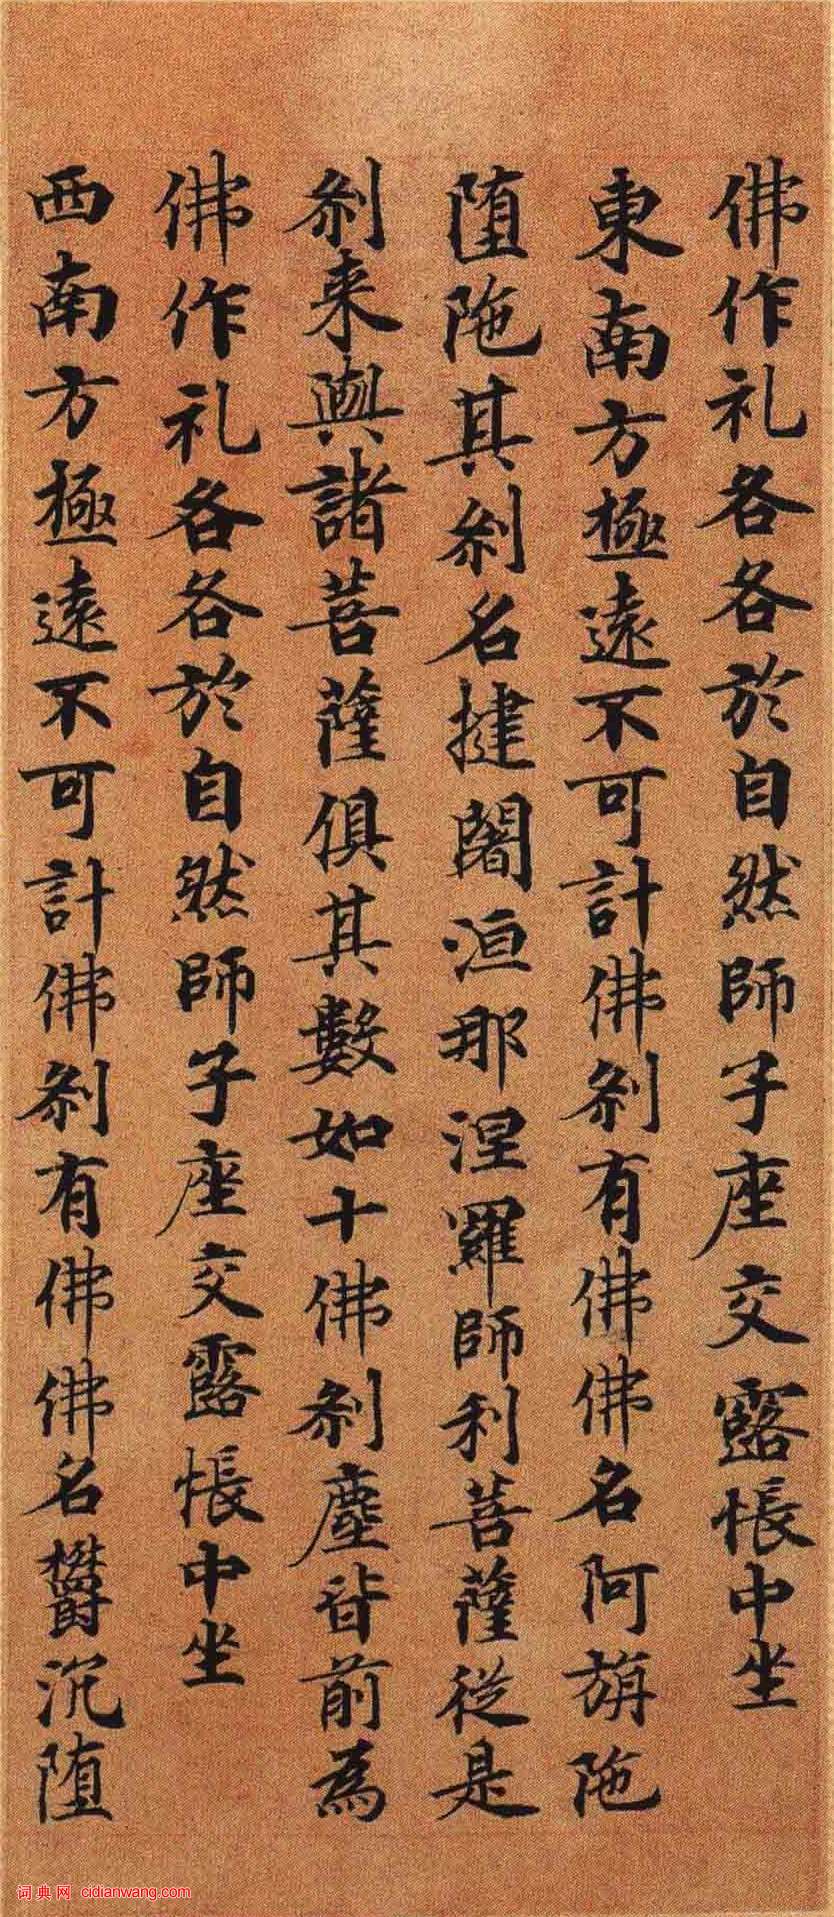 佛作礼各各於自然師子座交露帳中坐
東南方極遠不可計佛刹有佛佛名阿旃陁
堕陁其刹名揵闍洹那涅羅師利菩薩從是
刹来與諸菩薩俱其數如十佛刹塵皆前為
佛作礼各各於自然師子座交露帳中坐
西南方極遠不可計佛刹有佛佛名欝沉堕
词典网 cidianwang.com